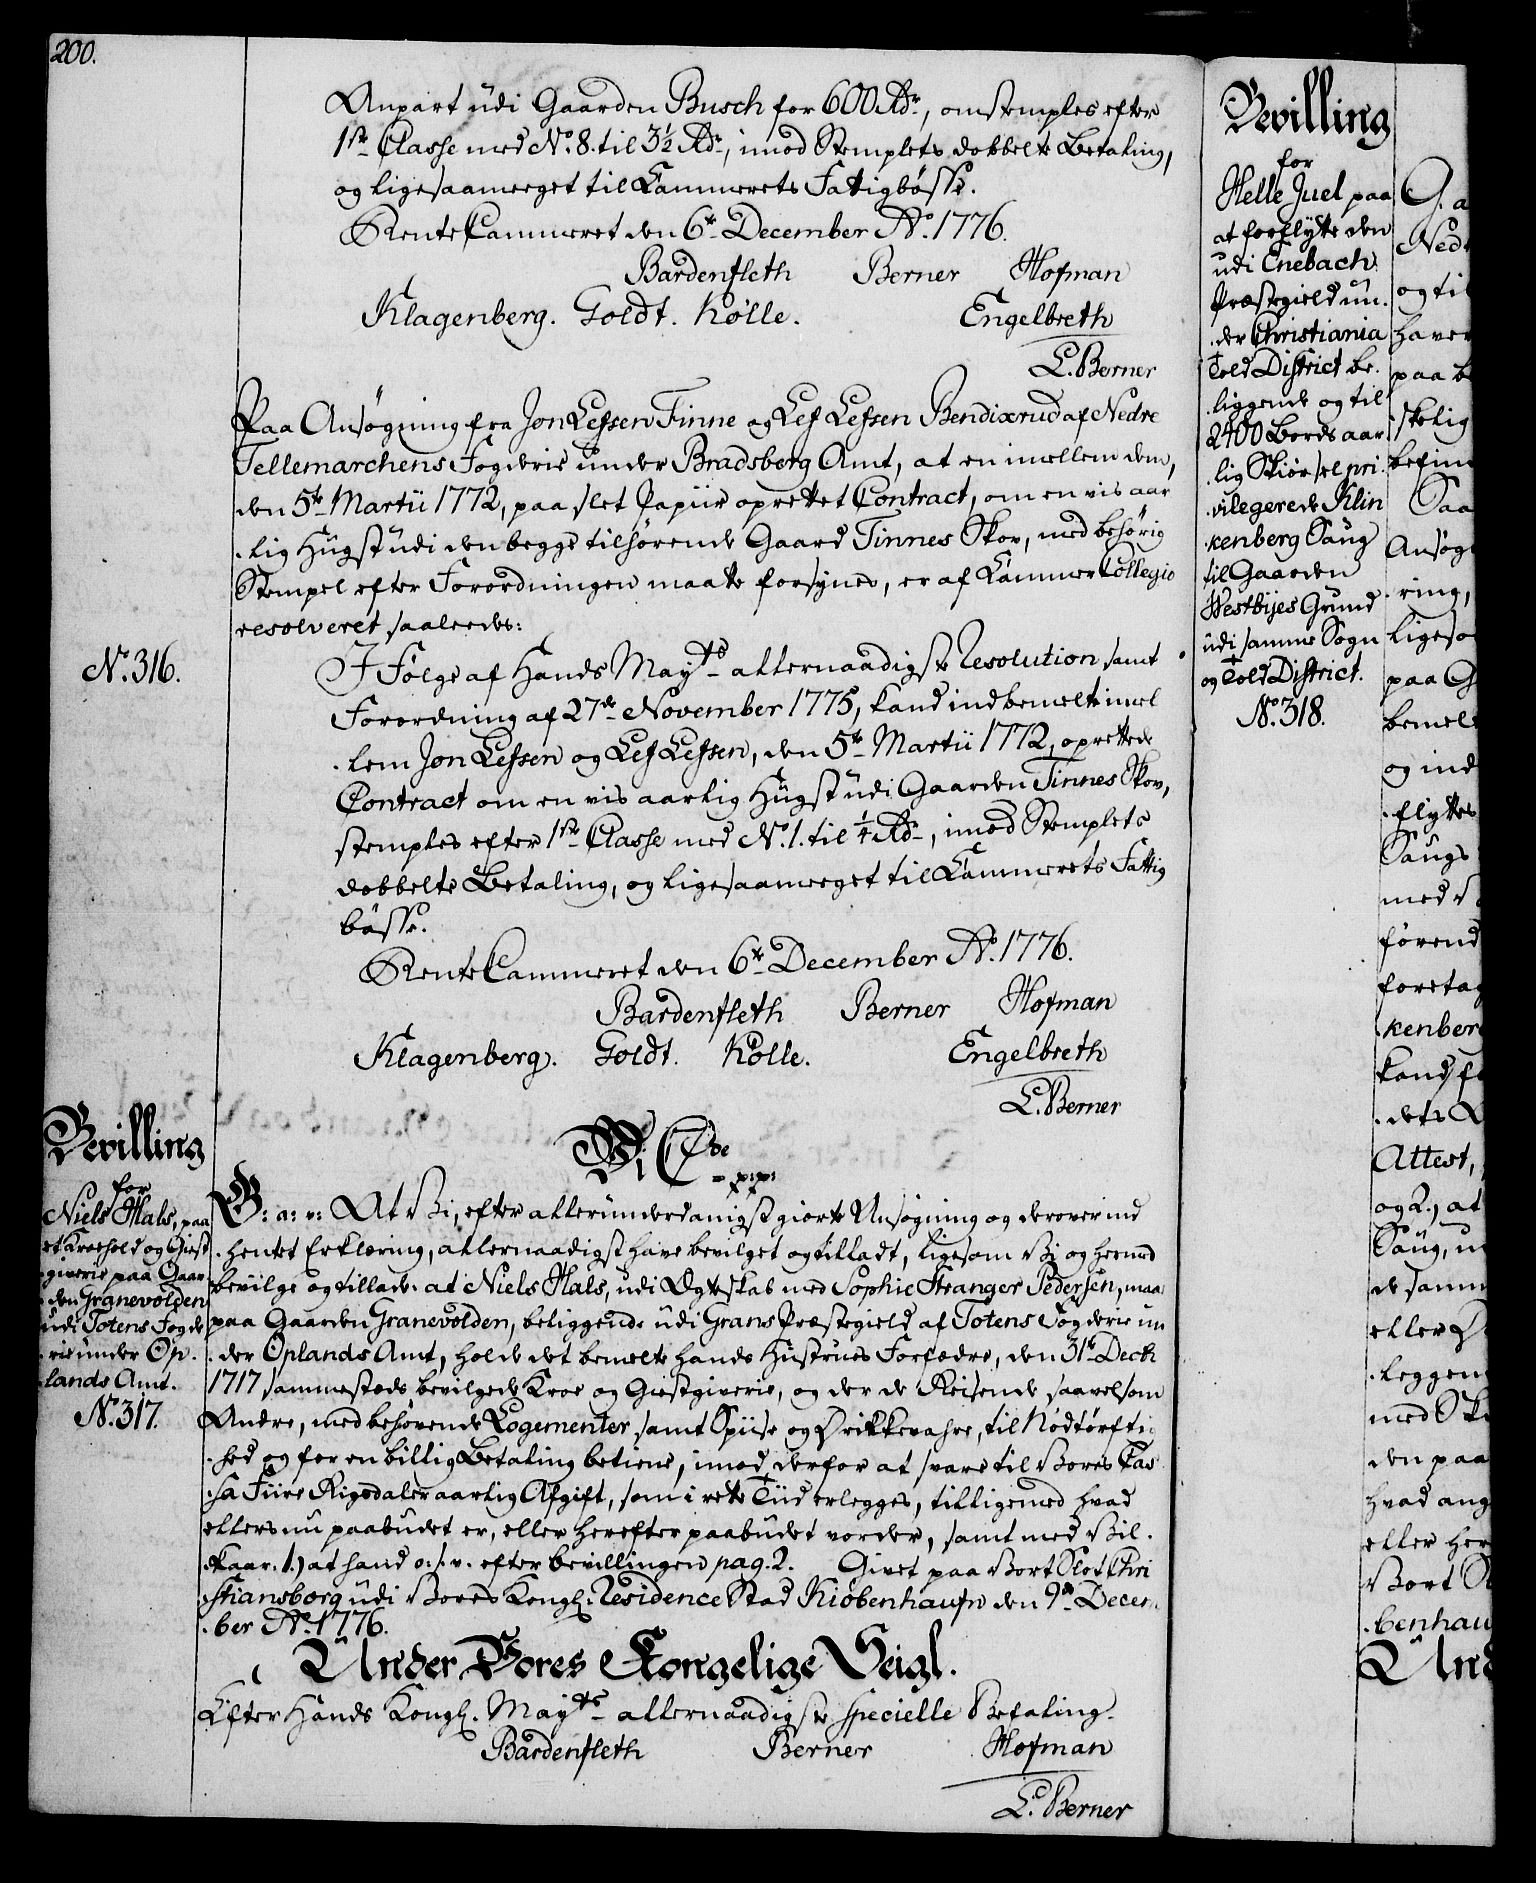 200.
Anpart udi Gaarden Busch for 600 Rdr., omstemples efter
1ste Classe med No. 8. til 3½ Rdr., imod Stemplets dobbelte Betaling,
og ligesaameeget til Cammerets Fattigbøsse.
RenteCammeret den 6te December Ao. 1776.
Bardenfleth Berner Hofman
Klagenberg. Goldt. Kølle. Engelbreth
L. Berner
Paa Ansøgning fra Jon Lefsen Tinne og Lef Lefsen Bendixrud af Nedre
Tellemarchens Fogderie under Bradsberg Amt, at en imellem dem,
den 5te Martii 1772, paa slet Papiir oprettet Contract, om en vis aar
lig Hugst udi den begge tilhørende Gaard Tinnes Skov, med behørig
Stempel efter Forordningen maatte forsynes, er af Cammer Collegio
resolveret saaledes:
No. 316.
I Følge af Hands Mayts allernaadigste Resolution samt
Forordning af 27de November 1775, kand indbemelte imel
lem Jon Lefsen og Lef Lefsen, den 5te Martii 1772, oprettede
Contract om en vis aarlig Hugst udi Gaarden Tinnes Skov,
stemples efter 1ste Classe med No. 1. til ¼ Rdr., imod Stemplets
dobbelte Betaling, og ligesaameeget til Cammerets Fattig
bøsse.
RenteCammeret den 6te December Ao. 1776.
Bardenfleth Berner Hofman
Klagenberg. Goldt. Kølle. Engelbreth
L. Berner
Bevilling
for
Niels Hals, paa
et Kroehold og Giest
giverie paa Gaar
den Granevolden
udi Totens Fogde
rie under Op
lands Amt.
No. 317.
Wi C 7de
p:p:
G: a: v: At Vi, efter allerunderdanigst giorte Ansøgning og derover ind
hentet Erklæring, allernaadigst have bevilget og tilladt, ligesom Vi og hermed
bevilge og tillade. at Niels Hals, udi Ægteskab med Sophie Stranger Pedersen, maa
paa Gaarden Granevolden, beliggende udi Grans Præstegield af Totens Fogderie un
der Oplands Amt, holde det bemelte hands Hustrues Forfædre, den 31te Decb
1717 sammesteds bevilgede Kroe og Giestgiverie, og der de Reisende saavelsom
Andre, med behørende Logementer samt Spiise og Drikkevahre, til Nødtørftig
hed og for en billig Betaling betiene, imod derfor at svare til Vores Cas
sa Fiire Rigsdaler aarlig Afgift, som i rette Tiid erlegges, tilligemed hvad
ellers nu paabudet er, eller herefter paabudet vorder, samt med Vil
kaar: 1.) at hand o: s: v. efter bevillingen pag. 2. Givet paa Vort Slot Chri
stiansborg udi Vores Kongl. Residence Stad Kiøbenhaufn den 9de Decem
ber Ao. 1776.
Under Vores Kongelige Seigl.
Efter Hands Kongl. Mayts allernaadigste specielle Befaling.
Bardenfleth Berner Hofman
L. Berner
Bevilling
for
Helle Juel paa
at forflytte den
udi Enebach
Præstegield un
der Christiania
Told District be
liggende og til
2400 Bords aar
lig Skiørsel pri
vilegerede Klin
kenberg Saug
til Gaarden
Westbyes Grund
udi samme Sogn
og Told District.
No. 318.
G. a
Ned
og til
haver
paa b
skelig
befin
Saa
Ansøg
ring,
ligeso
paa G
bemel
og ind
flyttes
Saugs
med
førend
foretag
kenber
kand fo
dets
Attest,
og 2.) at
Saug, u
de samm
eller
leggen
med Sk
den paa
hvad ang
eller her
Vort S
benhau
Und